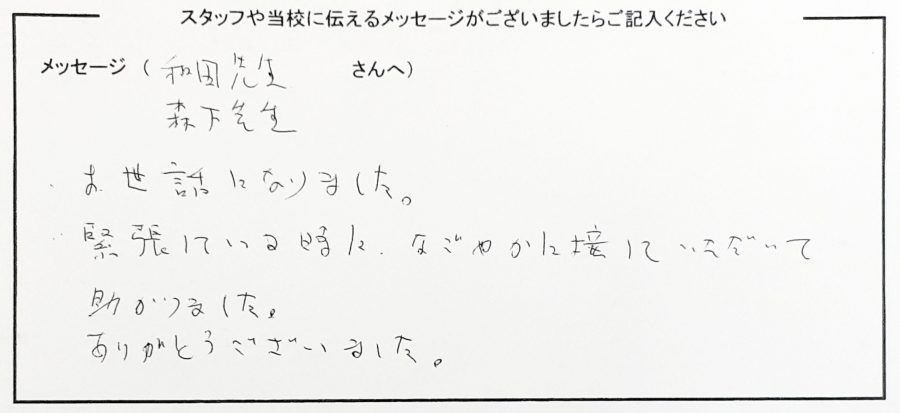 スタッフや当校に伝えるメッセージがございましたらご記入ください
メッセージ（和田先生 さんへ）
森下先生
お世話になりました。
緊張している時に、なごやかに接していただいて
助かりました。
ありがとうございました。